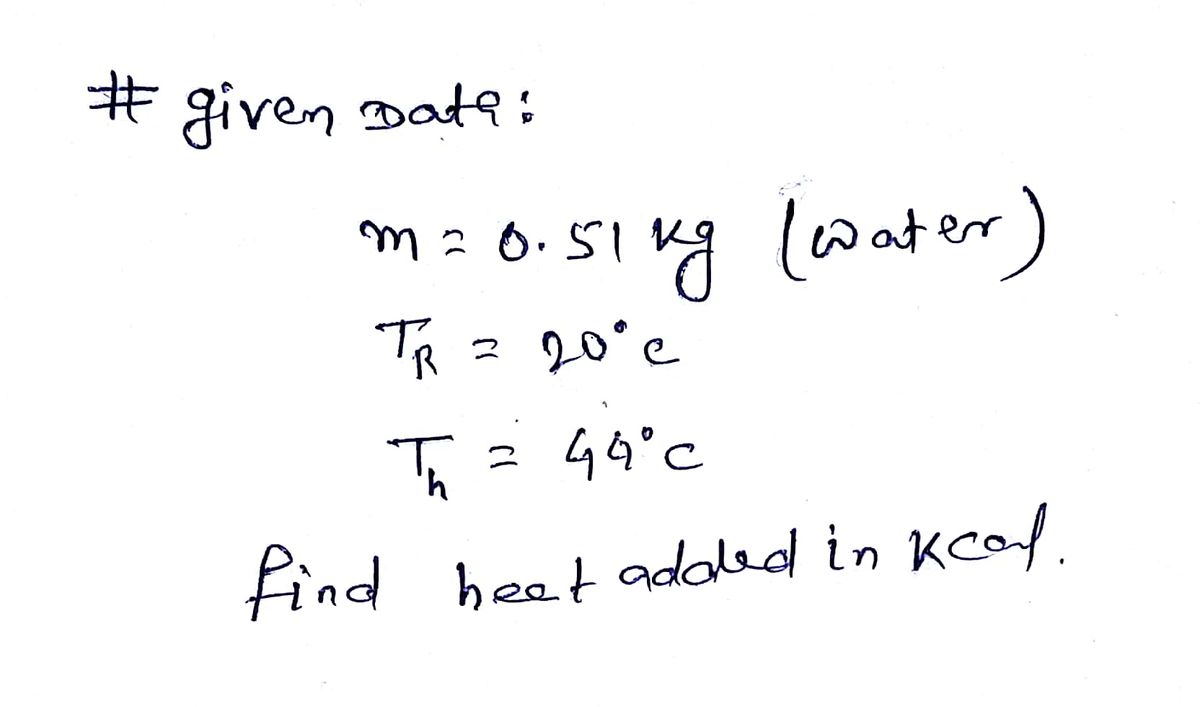 # given Data:
m = 0.51 kg (water)
TR = 20°c
Th = 44°c
find heat added in Kcal.